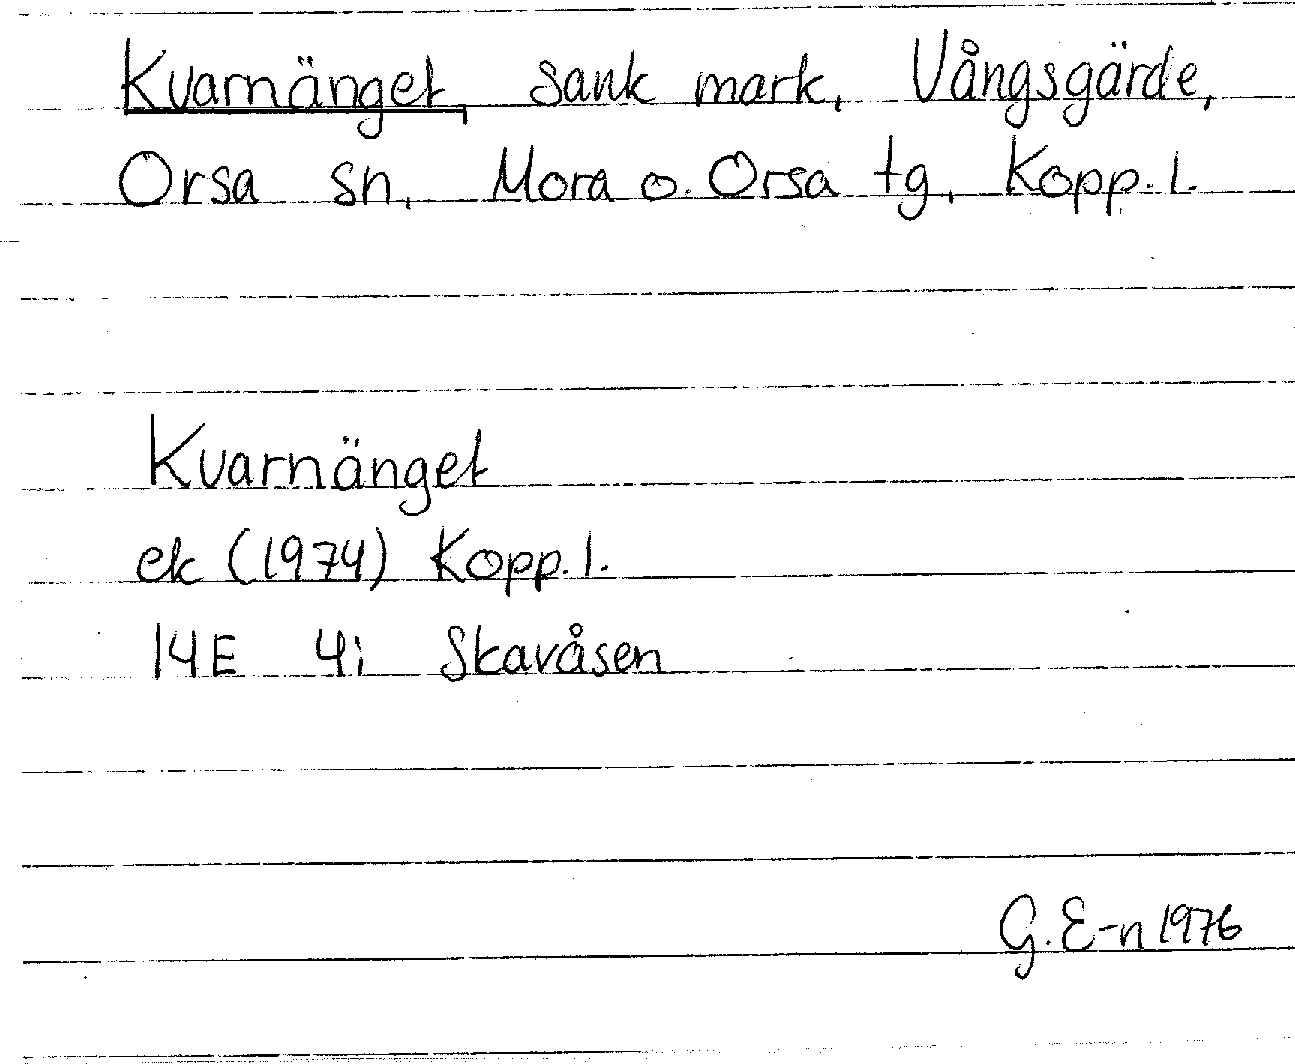 Kvarnänget, sank mark, Vångsgärde,
Orsa sn, Mora o. Orsa tg, Kopp. l.
Kvarnänget
ek (1974) Kopp. l.
14E 4i Skavåsen
G. E-n 1976